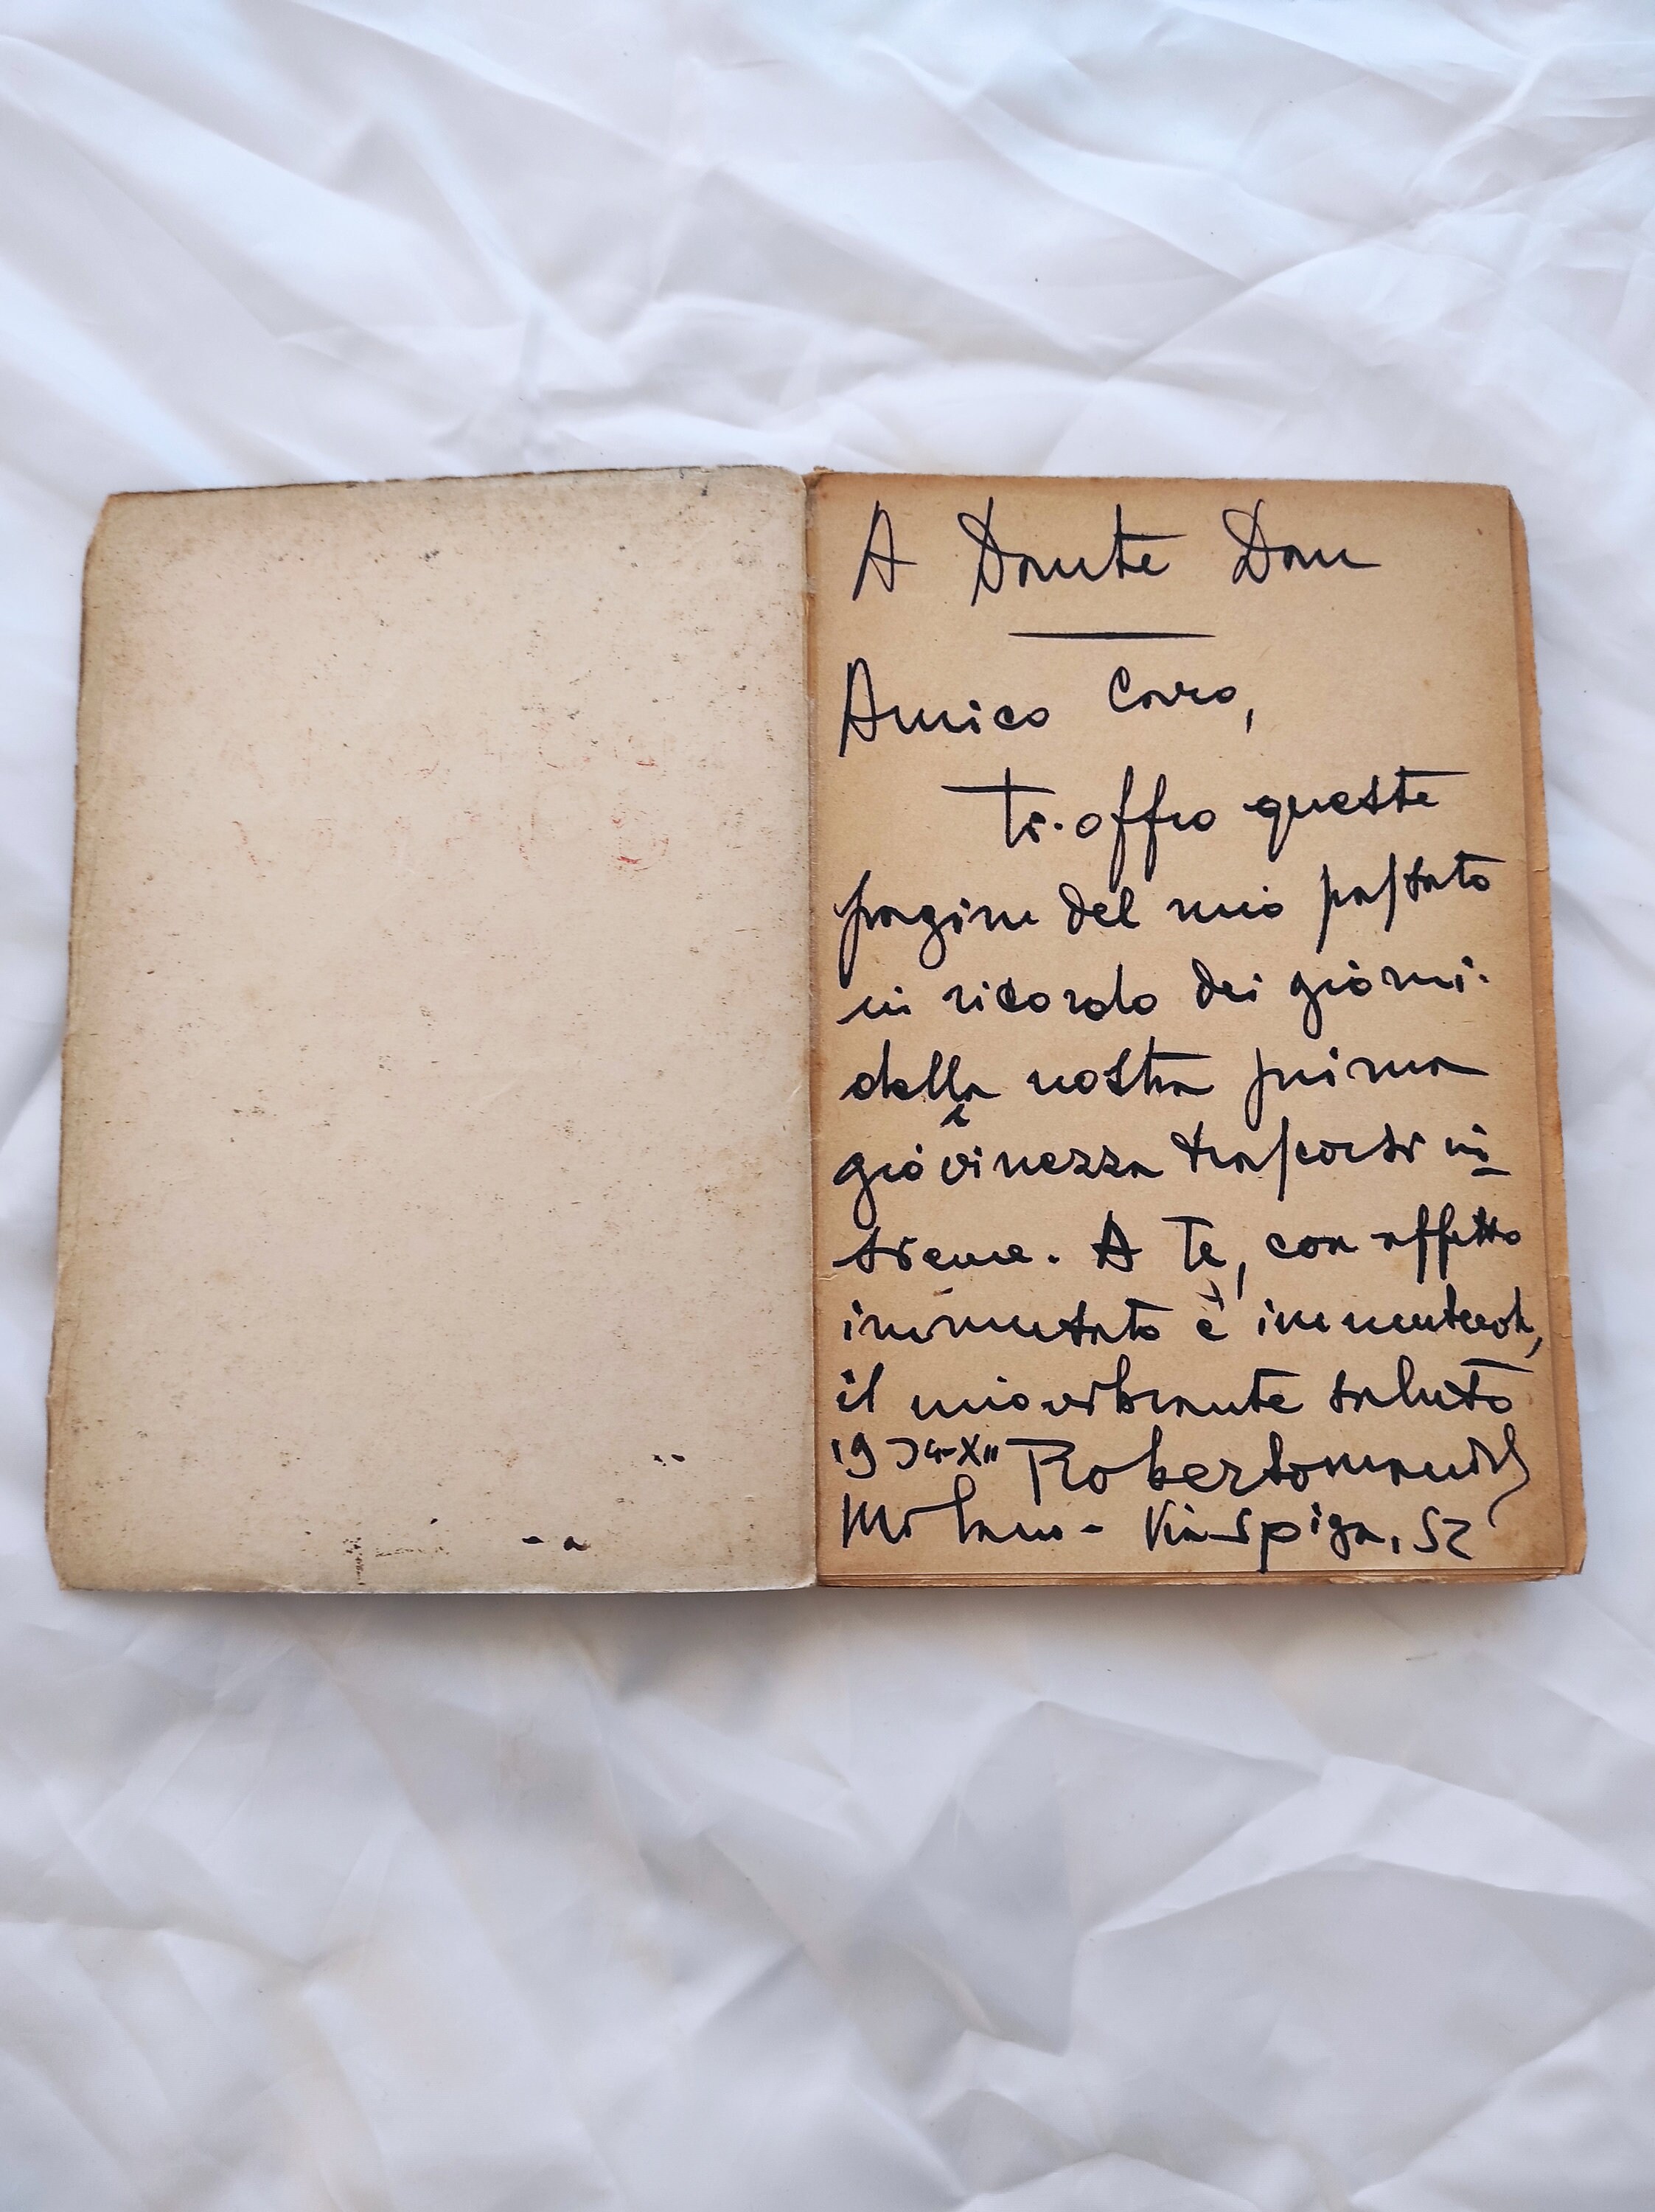 A Dante Dani
Amico Caro,
ti offro queste
pagine del mio passato
in ricordo dei giorni
della nostra prima
giovinezza trascorsi in
sieme. A Te, con affetto
immutato e immutevole,
il mio vibrante saluto
1934-XII
Milano - Via Spiga, 52